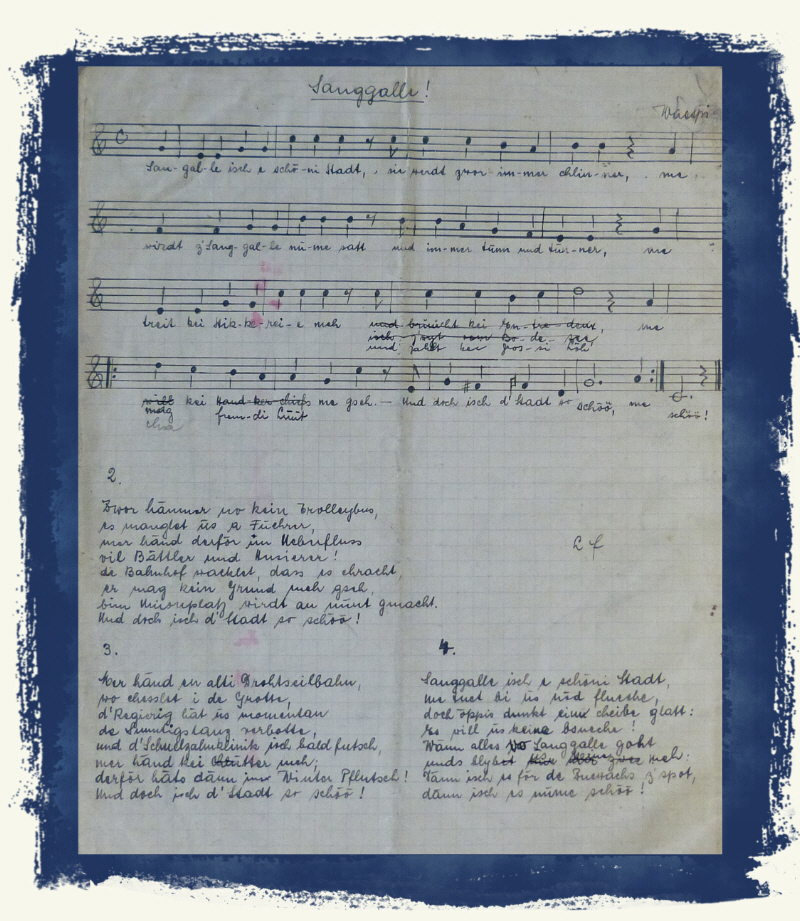 Sanggalle!
San-gal-le isch e schö-ni Stadt, sie wirdt zwor im-mer chlin-ner, me
wirdt z'Sang-gal-le nü-me satt und im-mer tünn und tün-ner, me
treit kei Stik-ke-rei-e meh und brücht kei En-tre-deux, me
isch
und zahlt kei
will kei Hand-ker-chiefs me gseh. — Und doch isch d'Stadt so schöö, me schöö!
mag frem-di Lüüt
2.
Zwor hämmer no kein Trolleybus,
es manglet üs a Füehrer,
mer händ derför im Ueberfluss
vil Bättler und Husierer!
de Bahnhof wacklet, dass es chracht,
er mag kein Grund meh gseh,
bim wirdt au nünt gmacht.
Und doch isch d'Stadt so schöö!
3.
Mer händ en alti Drohtseilbahn,
wo chesslet i de Grotte,
d'Regierig hät üs momentan
de Sunntigstanz verbotte,
und d'Schuelzahnklinik isch bald futsch,
mer händ kei meh;
derför häts dänn im Winter Pflutsch!
Und doch isch d'Stadt so schöö!
4.
Sanggalle isch e schöni Stadt,
me tuet bi üs nüd flueche,
doch öppis dunkt eim cheibe glatt:
Es will üs keine bsueche!
Wänn alles vo Sanggalle goht
und blybt keine meh:
Dänn isch es för de Zuewachs z'spot,
dänn isch es nüme schöö!